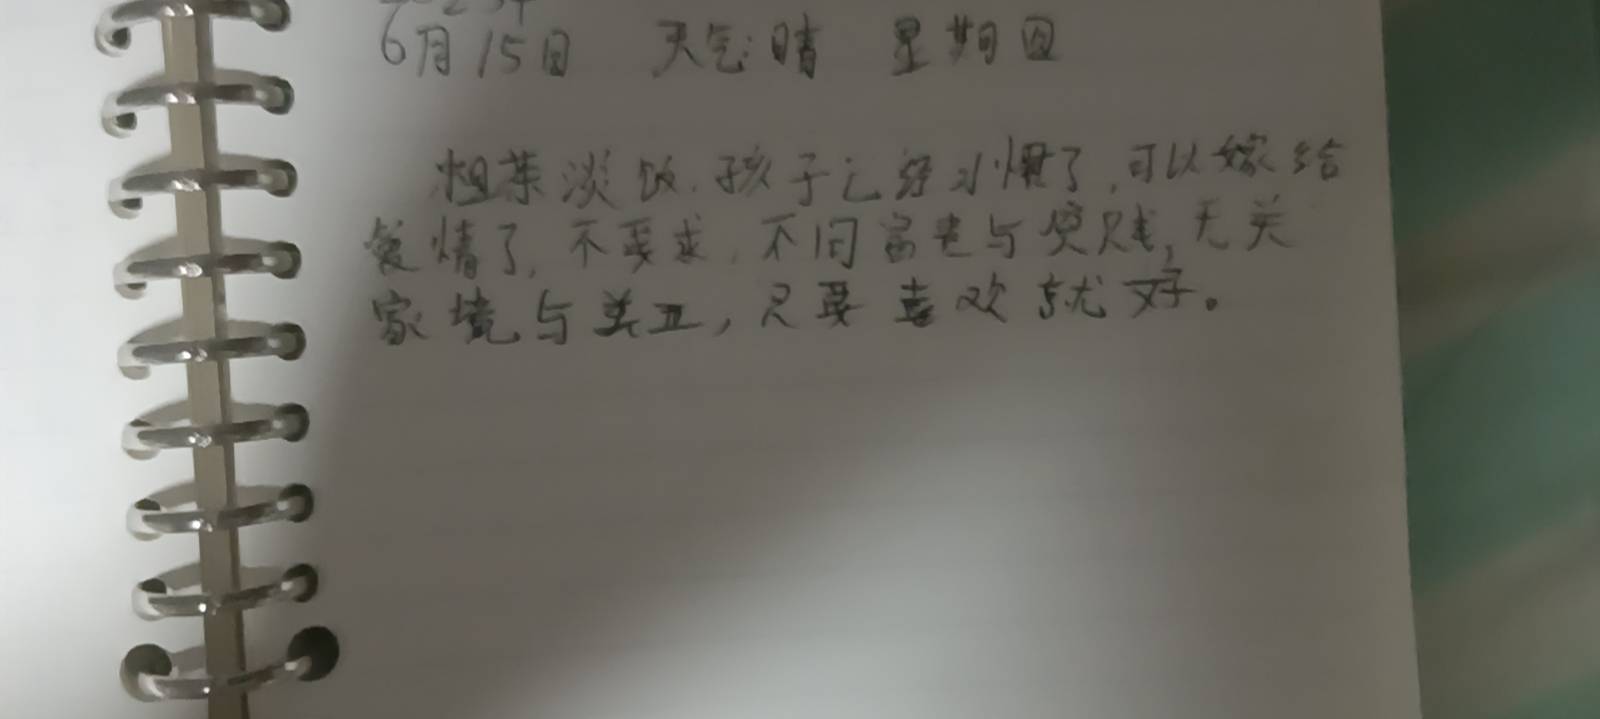 6月15日 天气:晴 星期四
粗茶淡饭,孩子已经习惯了,可以嫁给
爱情了,不要求,不问富贵与贫贱,无关
家境与美丑,只要喜欢就好。